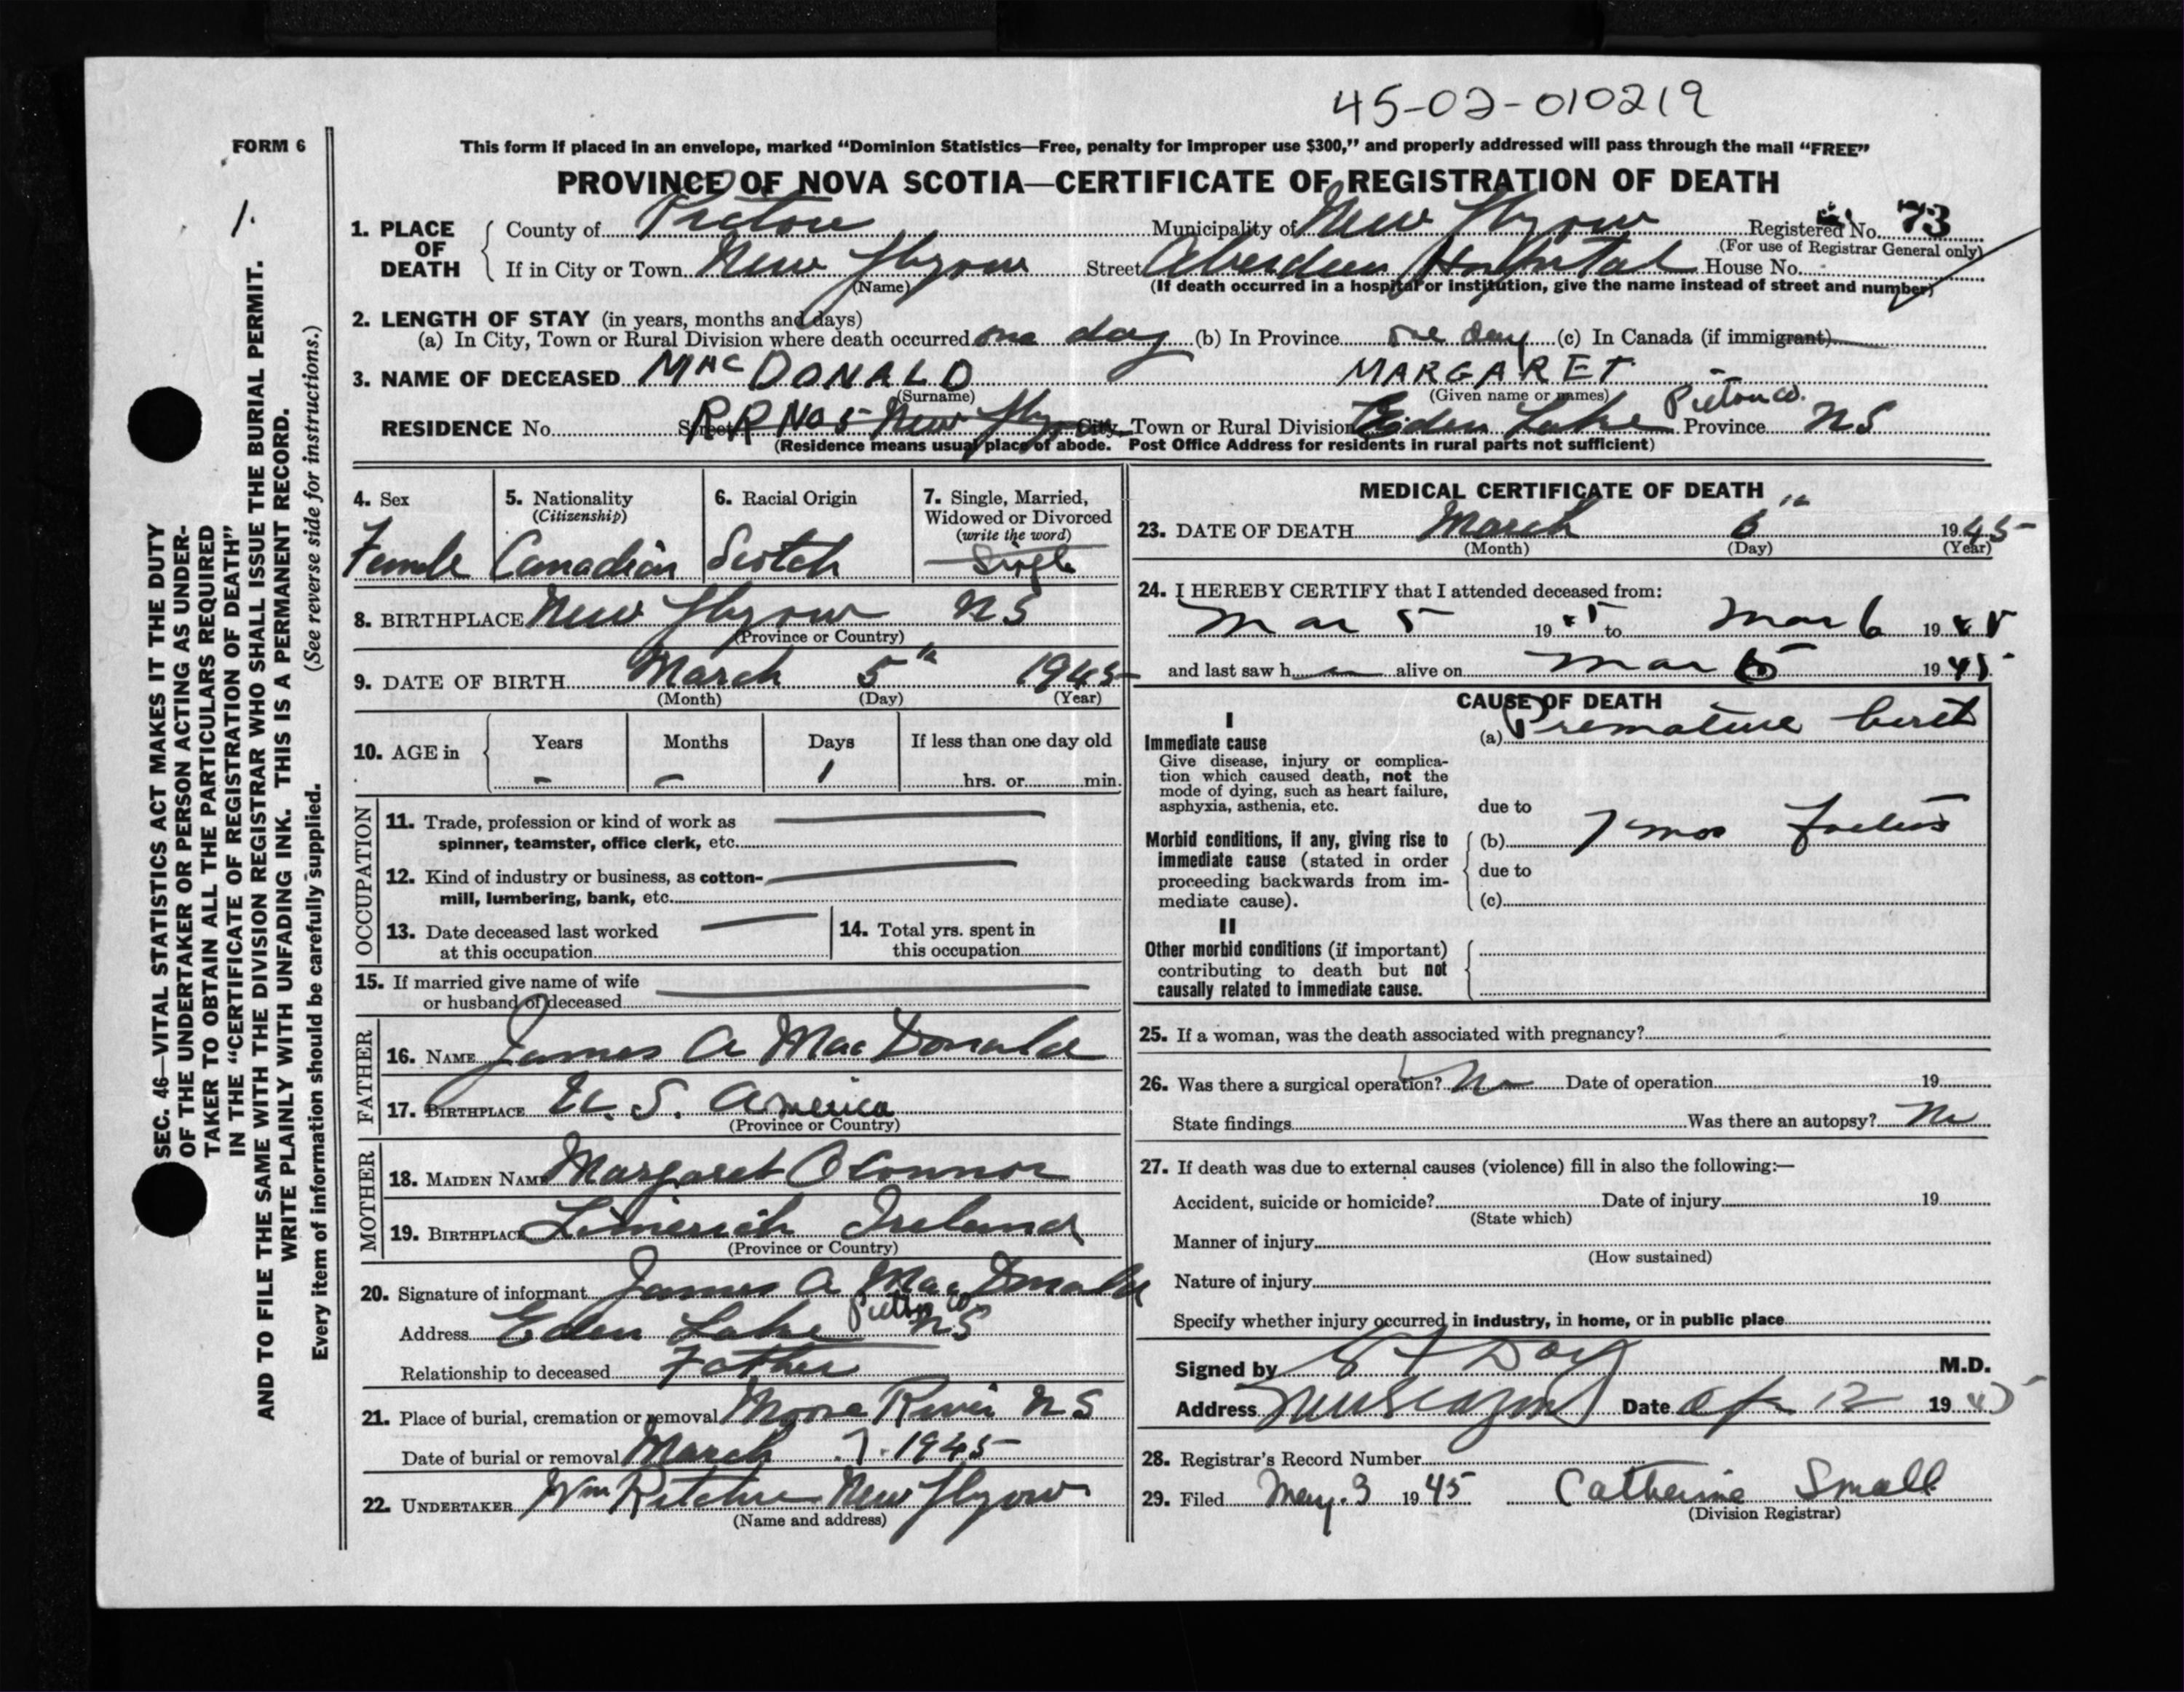 45-02-010219
FORM 6
This form if placed in an envelope, marked “Dominion Statistics—Free, penalty for improper use $300,” and properly addressed will pass through the mail “FREE”
PROVINCE OF NOVA SCOTIA—CERTIFICATE OF REGISTRATION OF DEATH
1.
1. PLACE OF DEATH
County of Pictou Municipality of New Glasgow Registered No. 73
(For use of Registrar General only)
If in City or Town New Glasgow Street Aberdeen Hospital House No.
(Name) (If death occurred in a hospital or institution, give the name instead of street and number)
2. LENGTH OF STAY (in years, months and days)
(a) In City, Town or Rural Division where death occurred one day (b) In Province one day (c) In Canada (if immigrant)
3. NAME OF DECEASED MacDONALD MARGARET
(Surname) (Given name or names)
RESIDENCE No. Street RR No 5 New Glasgow City, Town or Rural Division Eden Lake Pictou Co. Province NS
(Residence means usual place of abode. Post Office Address for residents in rural parts not sufficient)
4. Sex 5. Nationality 6. Racial Origin 7. Single, Married,
(Citizenship) Widowed or Divorced
(write the word)
Female Canadian Scotch Single
8. BIRTHPLACE New Glasgow NS
(Province or Country)
9. DATE OF BIRTH March 5th 1945
(Month) (Day) (Year)
10. AGE in Years Months Days If less than one day old
- - 1 hrs. or min.
OCCUPATION
11. Trade, profession or kind of work as
spinner, teamster, office clerk, etc.
12. Kind of industry or business, as cotton-
mill, lumbering, bank, etc.
13. Date deceased last worked 14. Total yrs. spent in
at this occupation this occupation
15. If married give name of wife
or husband of deceased
FATHER
16. NAME James A MacDonald
17. BIRTHPLACE U. S. America
(Province or Country)
MOTHER
18. MAIDEN NAME Margaret OConnor
19. BIRTHPLACE Limerick Ireland
(Province or Country)
20. Signature of informant James A MacDonald
Address Eden Lake Pictou Co NS
Relationship to deceased Father
21. Place of burial, cremation or removal Moose River NS
Date of burial or removal March 7. 1945
22. UNDERTAKER Wm Ritchie New Glasgow
(Name and address)
MEDICAL CERTIFICATE OF DEATH
23. DATE OF DEATH March 6th 1945
(Month) (Day) (Year)
24. I HEREBY CERTIFY that I attended deceased from:
Mar 5 1945 to Mar 6 1945
and last saw h alive on Mar 1945
CAUSE OF DEATH
I
Immediate cause (a) Premature birth
Give disease, injury or complica-
tion which caused death, not the
mode of dying, such as heart failure,
asphyxia, asthenia, etc. due to
Morbid conditions, if any, giving rise to (b) 7 mos foetus
immediate cause (stated in order
proceeding backwards from im- due to
mediate cause). (c)
II
Other morbid conditions (if important)
contributing to death but not
causally related to immediate cause.
25. If a woman, was the death associated with pregnancy?
26. Was there a surgical operation? No Date of operation 19
State findings Was there an autopsy? No
27. If death was due to external causes (violence) fill in also the following:—
Accident, suicide or homicide? Date of injury 19
(State which)
Manner of injury
(How sustained)
Nature of injury
Specify whether injury occurred in industry, in home, or in public place
Signed by Day M.D.
Address New Glasgow Date Ap 12 1945
28. Registrar's Record Number
29. Filed May. 3 1945 Catherine Small
(Division Registrar)
SEC. 46—VITAL STATISTICS ACT MAKES IT THE DUTY
OF THE UNDERTAKER OR PERSON ACTING AS UNDER-
TAKER TO OBTAIN ALL THE PARTICULARS REQUIRED
IN THE “CERTIFICATE OF REGISTRATION OF DEATH”
AND TO FILE THE SAME WITH THE DIVISION REGISTRAR WHO SHALL ISSUE THE BURIAL PERMIT.
WRITE PLAINLY WITH UNFADING INK. THIS IS A PERMANENT RECORD.
Every item of information should be carefully supplied. (See reverse side for instructions.)